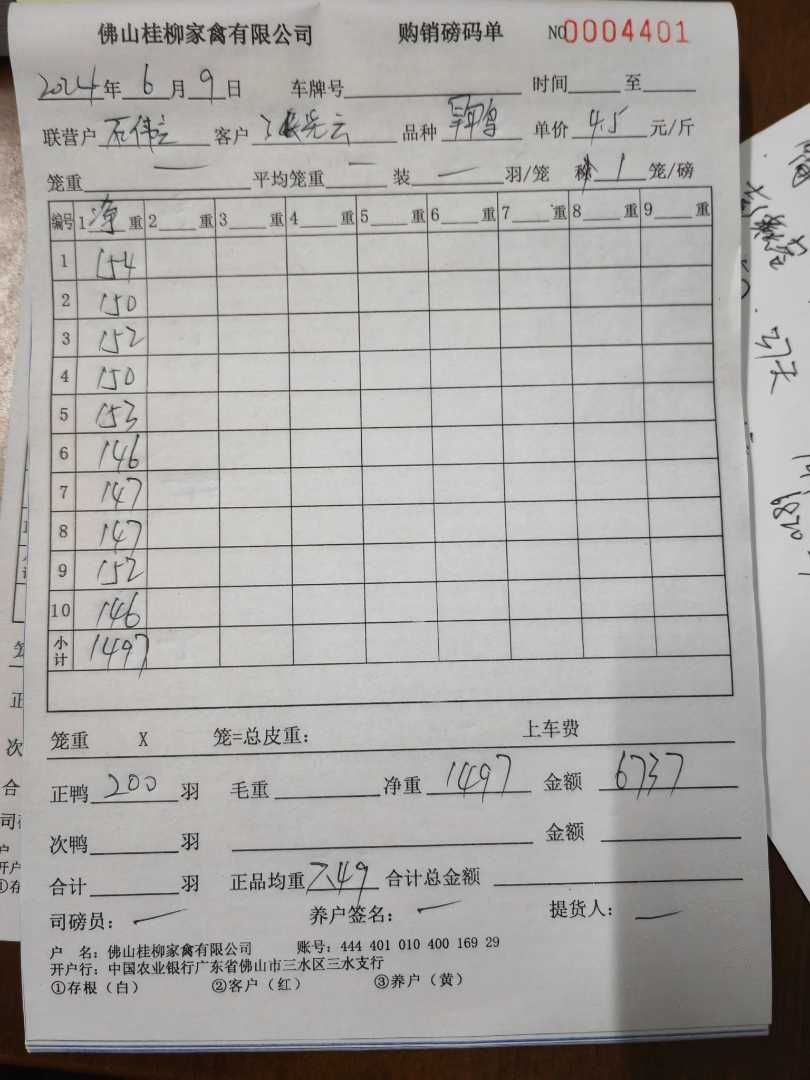 佛山桂柳家禽有限公司 购销磅码单 NO0004401
2024年6月9日 车牌号 时间 至
联营户 石伟立 客户 光云 品种 鸭 单价 4.5 元/斤
笼重 — 平均笼重 — 装 — 羽/笼 称 1 笼/磅
编号 1 净 重 2 重 3 重 4 重 5 重 6 重 7 重 8 重 9 重
1 154
2 150
3 152
4 150
5 153
6 146
7 147
8 147
9 152
10 146
小计 1497
笼重 X 笼=总皮重: 上车费
正鸭 200 羽 毛重 净重 1497 金额 6737
次鸭 羽 金额
合计 羽 正品均重 7.49 合计总金额
司磅员: — 养户签名: — 提货人: —
户 名: 佛山桂柳家禽有限公司 账号: 444 401 010 400 169 29
开户行: 中国农业银行广东省佛山市三水区三水支行
①存根(白) ②客户(红) ③养户(黄)